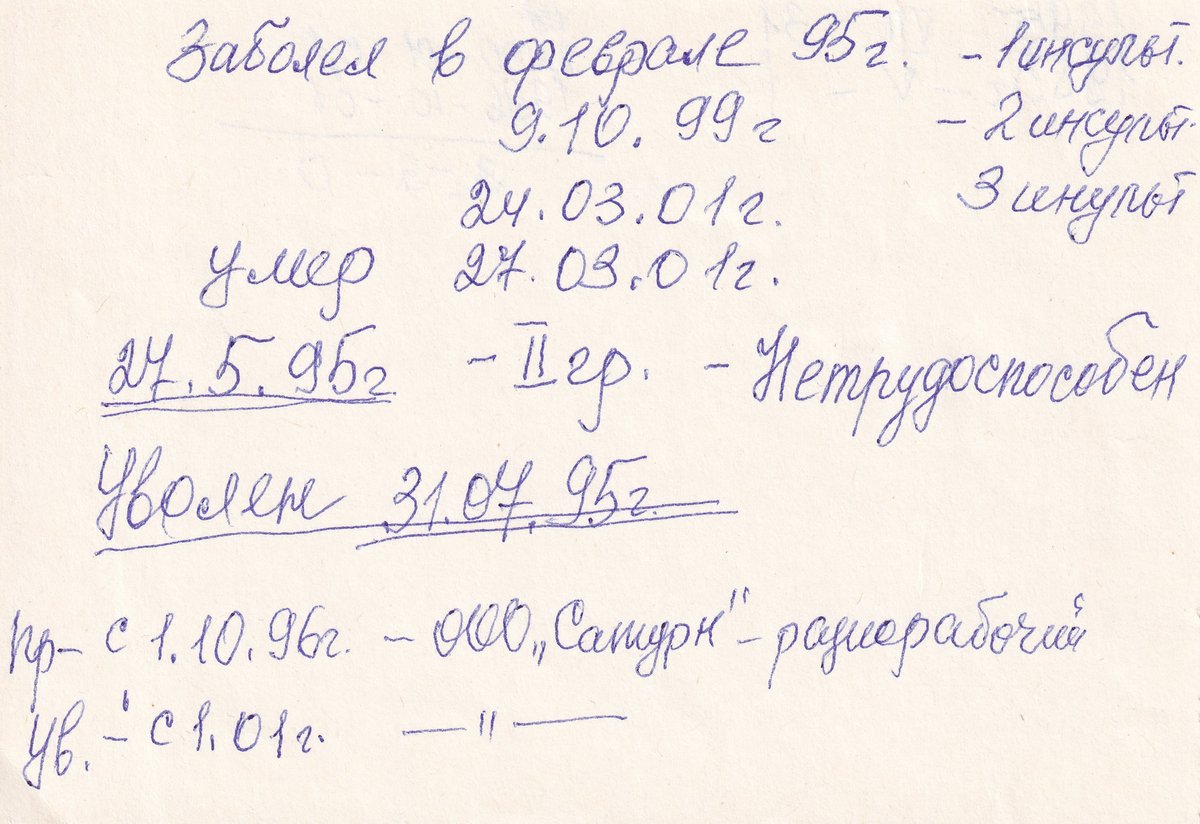 Заболел в феврале 95г. - 1 инсульт.
9.10.99г - 2 инсульт.
24.03.01г. 3 инульт
умер 27.03.01г.
27.5.95г - II гр. - Нетрудоспособен
Уволен 31.07.95г.
пр- с 1.10.96г. - ООО „Сатурн" - разнорабочий
Ув. - с 1.01г. — " —